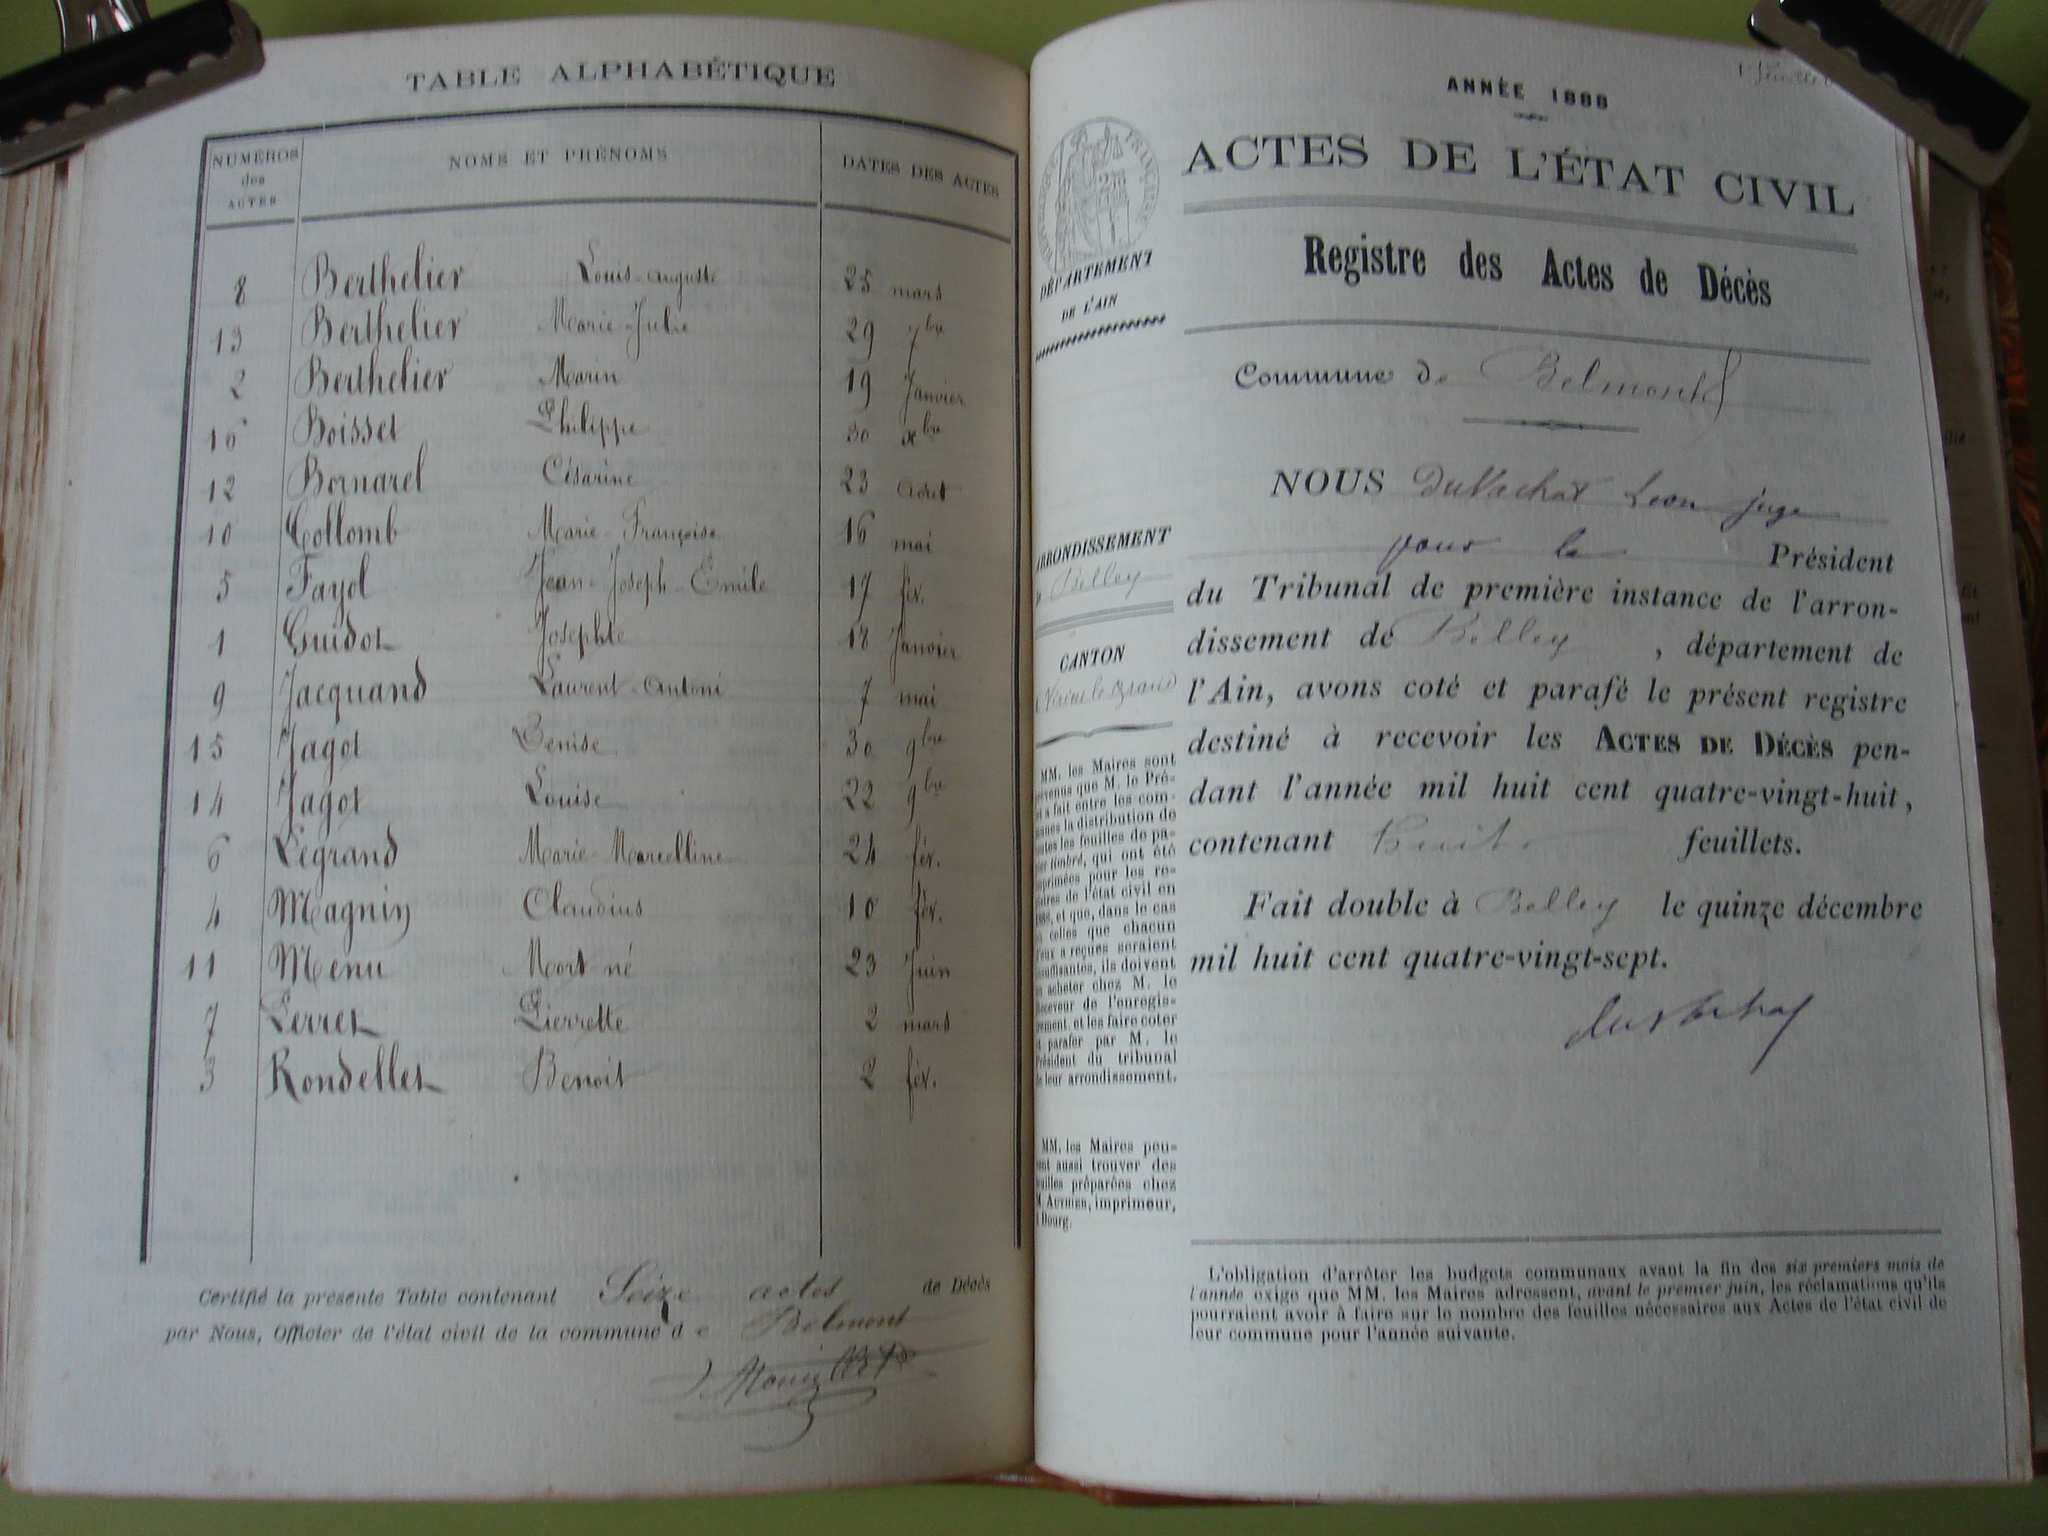 TABLE ALPHABÉTIQUE
NUMÉROS des ACTES NOMS ET PRÉNOMS DATES DES ACTES
8 Berthelier Louis-auguste 25 mars
13 Berthelier Marie-Julie 29 7bre
2 Berthelier Marin 19 Janvier
16 Boisset Philippe 30 xbre
12 Bornarel Césarine 23 Août
10 Collomb Marie-Françoise 16 mai
5 Fayol Jean-Joseph-Emile 17 fév.
1 Guidot Josephte 18 Janvier
9 Jacquand Laurent-Antoni 7 mai
15 Jagot Denise 30 9bre
14 Jagot Louise 22 9bre
6 Legrand Marie-Marcelline 24 fév.
4 Magnin Claudius 10 fév.
11 Menu Mort-né 23 Juin
7 Perret Pierrette 2 mars
3 Rondellet Benoit 2 fév.
Certifié la présente Table contenant Seize actes de Décès
par Nous, Officier de l'état civil de la commune de Belmont
ANNÉE 1888
ACTES DE L'ÉTAT CIVIL
Registre des Actes de Décès
DÉPARTEMENT
DE L'AIN
Commune de Belmont
NOUS DuVachat Leon juge
pour le Président
du Tribunal de première instance de l'arron-
dissement de Belley, département de
l'Ain, avons coté et parafé le présent registre
destiné à recevoir les ACTES DE DÉCÈS pen-
dant l'année mil huit cent quatre-vingt-huit,
contenant huit feuillets.
Fait double à Belley le quinze décembre
mil huit cent quatre-vingt-sept.
DuVachat
ARRONDISSEMENT
Belley
CANTON
Virieu le Grand
MM. les Maires sont
prévenus que M. le Pré-
et a fait entre les com-
munes la distribution de
toutes les feuilles de pa-
pier timbré, qui ont été
imprimées pour les re-
gistres de l'état civil en
1888, et que, dans le cas
où celles que chacun
d'eux a reçues seraient
insuffisantes, ils doivent
en acheter chez M. le
Receveur de l'enregis-
trement, et les faire coter
et parafer par M. le
Président du tribunal
de leur arrondissement.
MM. les Maires peu-
vent aussi trouver des
feuilles préparées chez
M. AUTHIER, imprimeur,
à Bourg.
L'obligation d'arrêter les budgets communaux avant la fin des six premiers mois de
l'année exige que MM. les Maires adressent, avant le premier juin, les réclamations qu'ils
pourraient avoir à faire sur le nombre des feuilles nécessaires aux Actes de l'état civil de
leur commune pour l'année suivante.